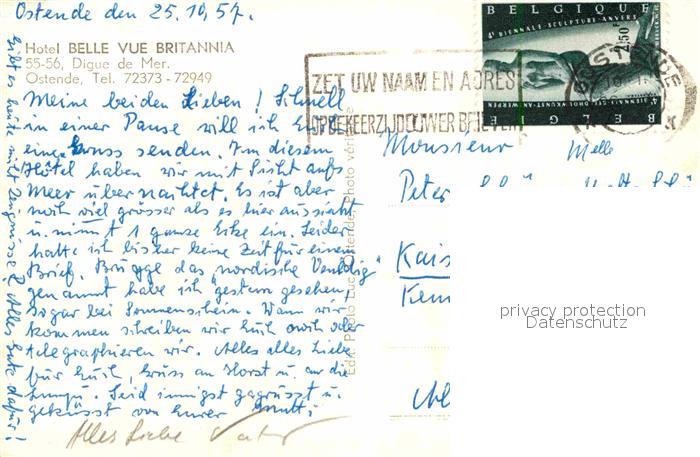 Ostende den 25.10.57.
Hotel BELLE VUE BRITANNIA
55-56, Digue de Mer.
Ostende, Tel. 72373 - 72949
Meine beiden Lieben! Schnell
in einer Pause will ich Euch
einen Gruss senden. In diesem
Hôtel haben wir mit Sicht aufs
Meer übernachtet. Es ist aber
noch viel grösser als es hier aussieht
u. nimmt 1 ganze Ecke ein. Leider
hatte ich bisher keine Zeit für einen
Brief. Brügge das "nordische Venedig"
genannt habe ich gestern gesehen,
sogar bei Sonnenschein. Wann wir
kommen schreiben wir Euch noch oder
telegraphieren wir. Alles alles Liebe
für Euch, Gruss an Horst u. an die
Seid innigst gegrüsst u.
geküsst von Eurer Mutti.
Alles Liebe Vater
Gibt es heute nicht Zeugnisse? Alles Gute dafür!
Edit. Photo vérit
BELGIQUE
4e BIENNALE · SCULPTURE · ANVERS
2,50F
BELGIE
ZET UW NAAM EN ADRES
OP DE KEERZIJDE UWER BRIEVEN
OOSTENDE
Monsieur Melle
Peter
Kais
privacy protection
Datenschutz